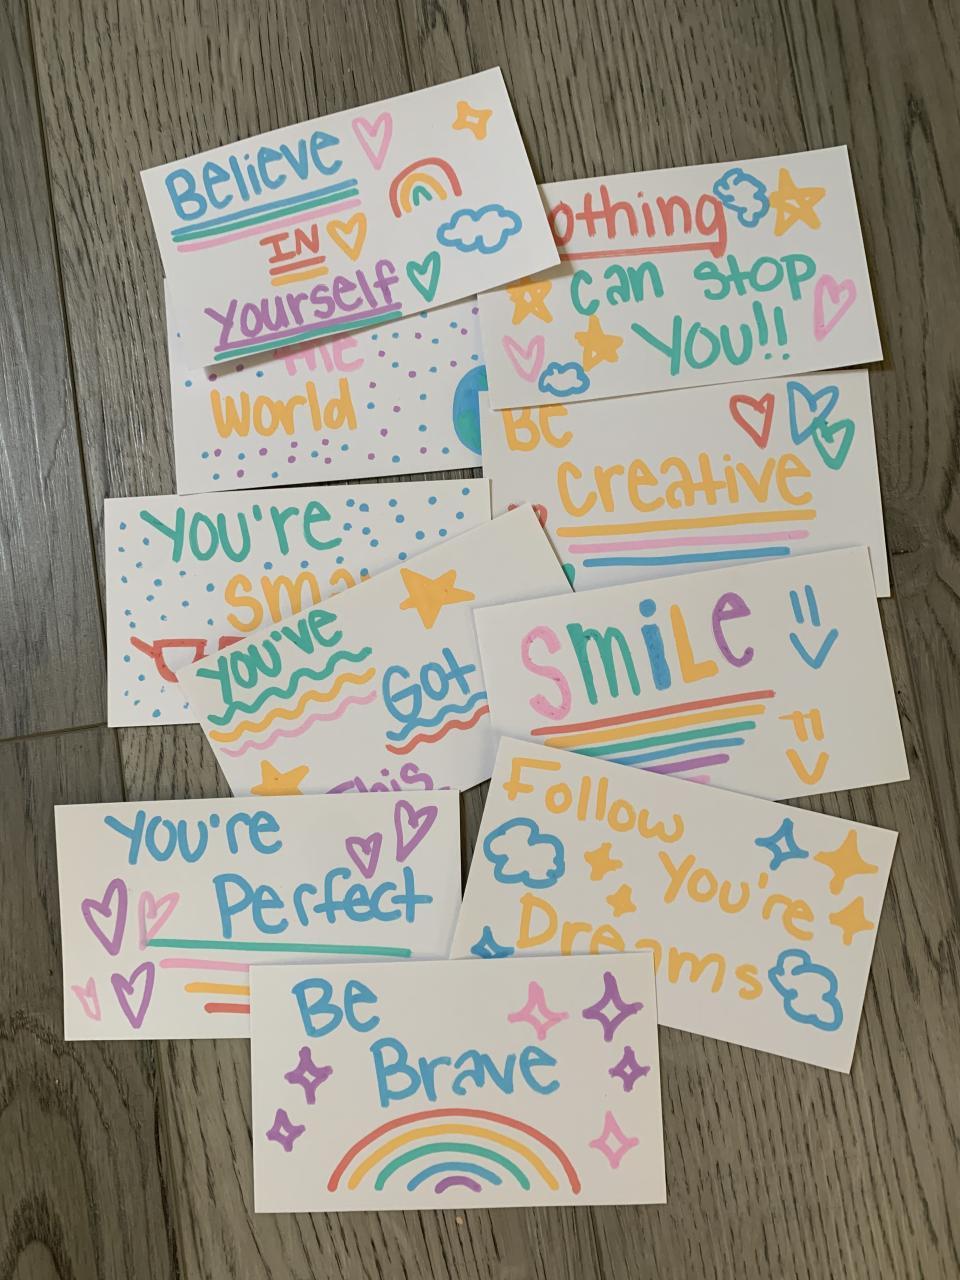 Believe
IN
yourself
othing
can stop
you!!
the
World
Be
creative
You're
sma
You've
Got
This
Smile
You're
Perfect
Follow
You're
Dreams
Be
Brave